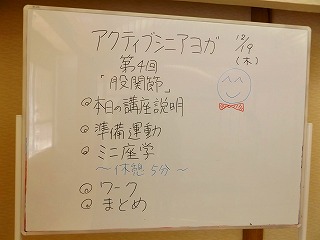 アクティブシニアヨガ
12/19
(木)
第4回
「股関節」
◎本日の講座説明
◎準備運動
◎ミニ座学
～休憩5分～
◎ワーク
◎まとめ